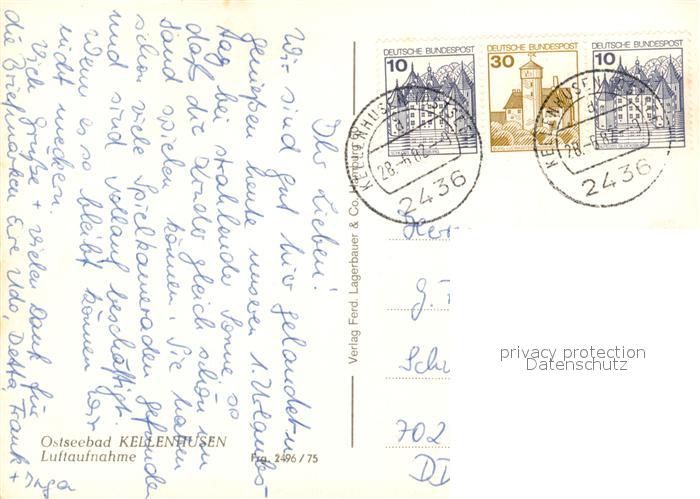 Ihr Lieben!
Wir sind gut hier gelandet u.
genießen heute unseren 1. Urlaubs-
tag bei strahlender Sonne, so
daß die Kinder gleich schön im
Sand spielen können. Sie haben
schon viele Spielkameraden gefunden
und sind vollauf beschäftigt.
Wenn es so bleibt können wir
nicht meckern.
Viele Grüße + vielen Dank für
die Briefmarken Eure Udo, Detta, Frank +
Inga
Ostseebad KELLENHUSEN
Luftaufnahme
Frg. 2496/75
Verlag Ferd. Lagerbauer & Co., Hamburg
DEUTSCHE BUNDESPOST
10
DEUTSCHE BUNDESPOST
30
DEUTSCHE BUNDESPOST
10
KELLENHUSEN, OSTSEE
28.-6.82
2436
KELLENHUSEN, OSTSEE
28.-6.82
2436
Herr
G.
Sch
702
DD
privacy protection
Datenschutz